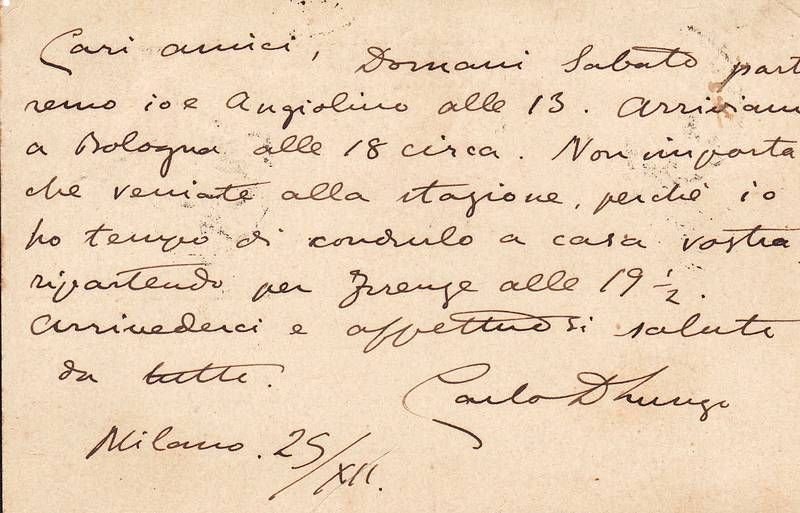 Cari amici, Domani Sabato part
remo io e Angiolino alle 13. Arriviam
a Bologna alle 18 circa. Non importa
che veniate alla stazione, perché io
ho tempo di condurlo a casa vostra,
ripartendo per Firenze alle 19 ½.
Arrivederci e affettuosi saluti
da tutti.
Carlo
Milano. 25/XII.